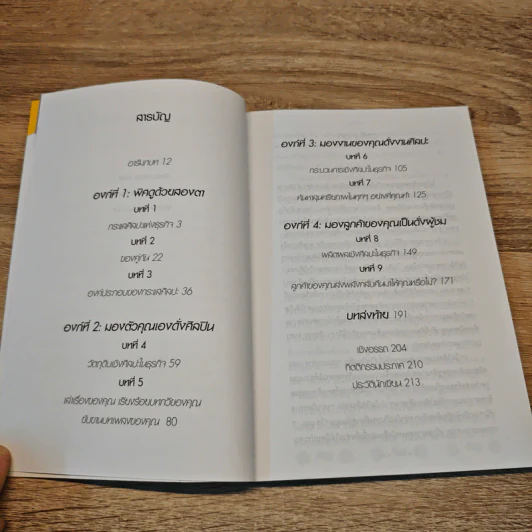 สารบัญ
อารัมภบท 12
องก์ที่ 1: พิศดูด้วยสองตา
บทที่ 1
กระแสศิลปะแห่งธุรกิจ 3
บทที่ 2
ของคู่กัน 22
บทที่ 3
องค์ประกอบของกระแสศิลปะ 36
องก์ที่ 2: มองตัวคุณเองดั่งศิลปิน
บทที่ 4
วัตถุดิบเชิงศิลปะในธุรกิจ 59
บทที่ 5
เล่าเรื่องของคุณ เรียงร้อยบทกวีของคุณ
ขับขานบทเพลงของคุณ 80
องก์ที่ 3: มองงานของคุณดั่งงานศิลปะ
บทที่ 6
กระบวนการเชิงศิลปะในธุรกิจ 105
บทที่ 7
ค้นหาสุนทรียภาพในทุกๆ อย่างที่คุณทำ 125
องก์ที่ 4: มองลูกค้าของคุณเป็นดั่งผู้ชม
บทที่ 8
ผลิตผลเชิงศิลปะในธุรกิจ 149
บทที่ 9
ลูกค้าของคุณส่งพลังกลับคืนมาให้คุณหรือไม่? 171
บทส่งท้าย 191
เชิงอรรถ 204
กิตติกรรมประกาศ 210
ประวัตินักเขียน 213